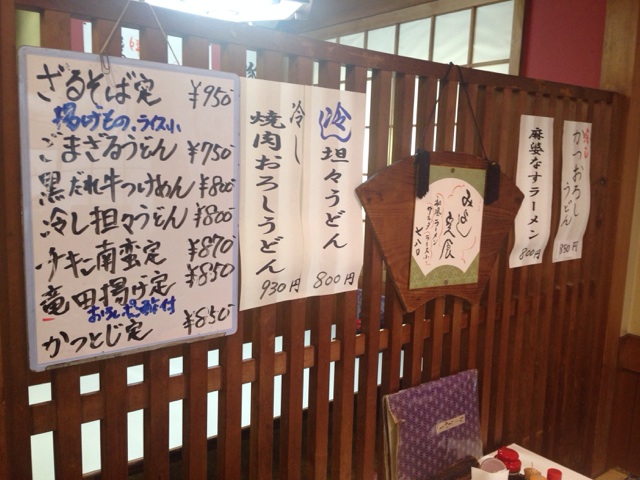 ざるそば定 ¥950
揚げもの、ライス小
ごまざるうどん ¥750
黒だれ牛つけめん ¥800
冷し担々うどん ¥800
チキン南蛮定 ¥870
竜田揚げ定 ¥850
おろしポン酢付
かつとじ定 ¥850
冷し
焼肉おろしうどん
930円
冷 坦々うどん
800円
みよし
定食
七八〇
麻婆なすラーメン
800円
冷し
かつおろし
うどん
850円